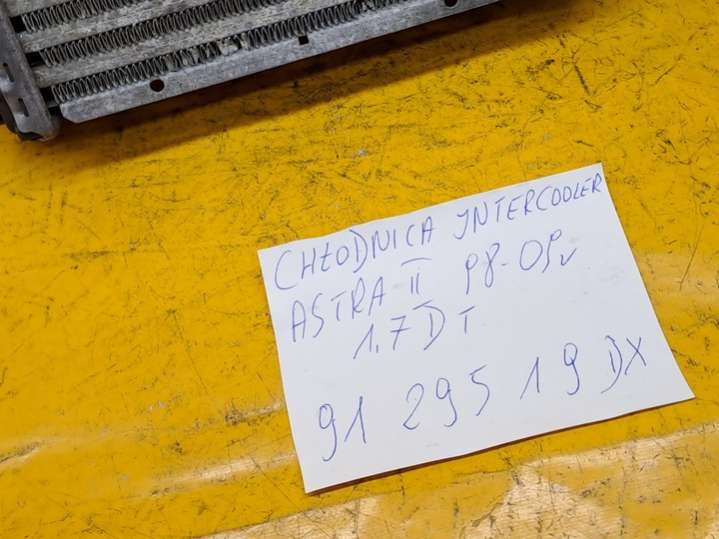 CHŁODNICA INTERCOOLER
ASTRA II 98-09r
1.7 DT
91 295 19 DX